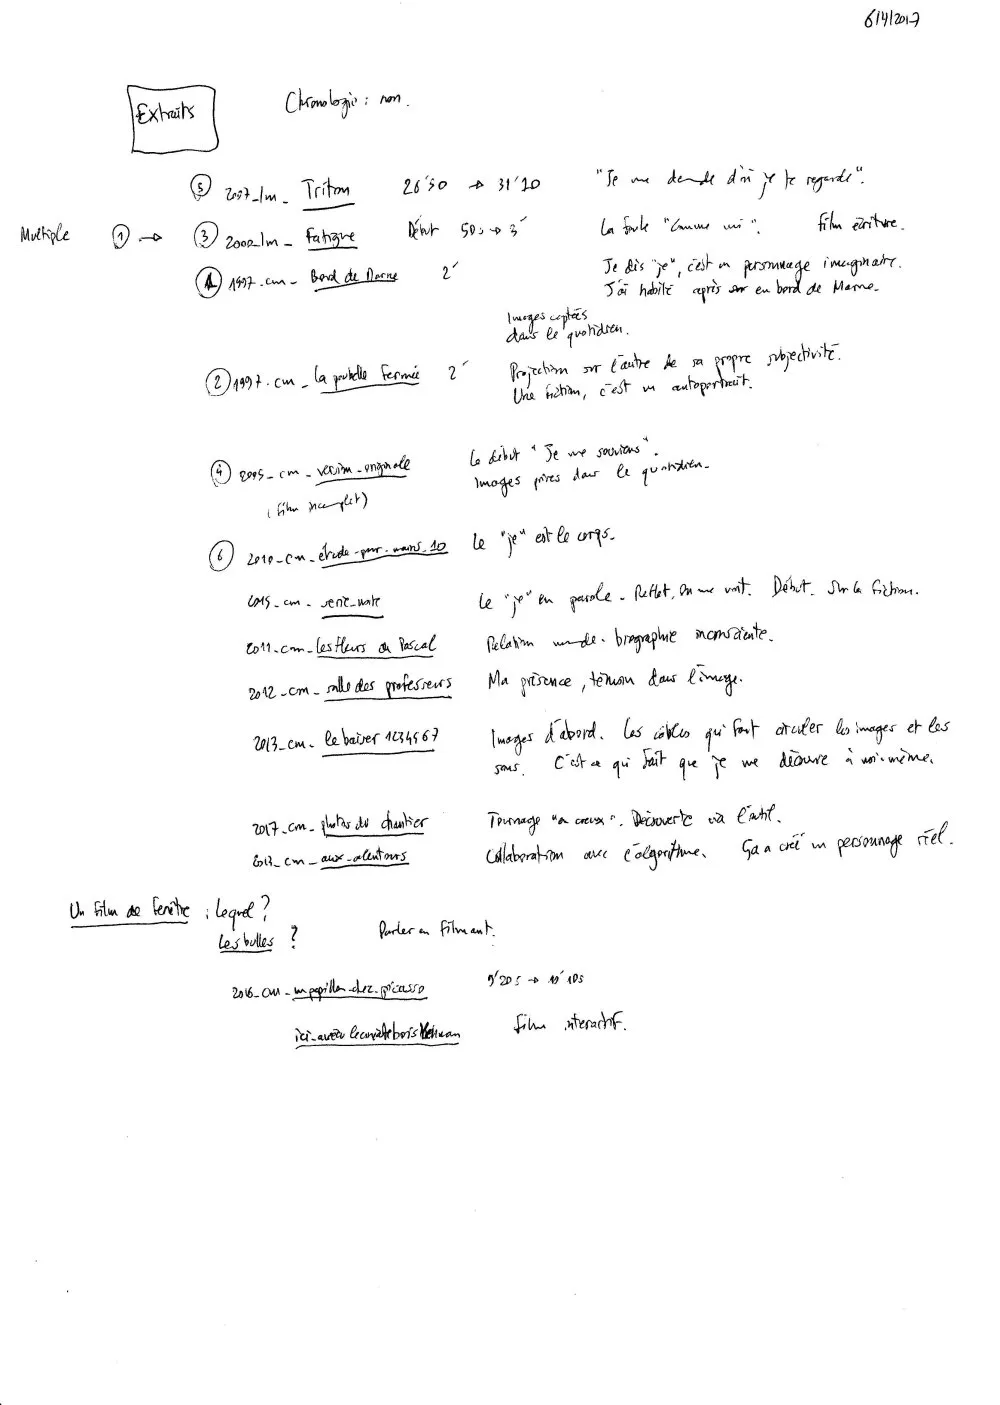 6/4/2017
Extraits
Chronologie : non.
5 2007_lm_ Triton 26'50 → 31'10 "Je me demande d'où je te regarde".
Multiple 1 → 3 2000_lm_ Fatigue Début 50s → 3' La foule "Comme moi". Film écriture.
1 1997.cm_ Bord de Marne 2' Je dis "je", c'est un personnage imaginaire.
J'ai habité après en bord de Marne.
Images captées
dans le quotidien.
2 1997.cm_ la poubelle fermée 2' Projection sur l'autre de sa propre subjectivité.
Une fiction, c'est un autoportrait.
4 2005_cm_ version_originale Le début "Je me souviens".
(film incomplet) Images prises dans le quotidien.
6 2010_cm_étude-pour-mains_10 Le "je" est le corps.
2015_cm_ Le "je" en parole. Reflet, on me voit. Début. Sur la fiction.
2011_cm_les fleurs de Pascal Relation monde. biographie inconsciente.
2012_cm_ salle des professeurs Ma présence, témoin dans l'image.
2013_cm_ le baiser 1234567 Images d'abord. Les câbles qui font circuler les images et les
sons. C'est ce qui fait que je me découvre à moi-même.
2017_cm_ photos du chantier Tournage "en creux". Découverte via l'outil.
cm_ aux_alentours Collaboration avec l'algorithme. Ça a créé un personnage réel.
Un film de fenêtre : lequel ?
Les bulles ? Parler en filmant.
2016_cm_ un papillon-chez-picasso 9'20s → 10'10s
ici_avec le comte de bois film interactif.